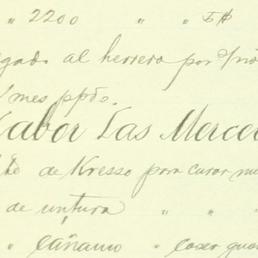 " 2200 " " I#
gado al herrero por
mes ppdo.
Labor Las Merce
de Kresso para curar
de untura " "
" Cáñamo " coser